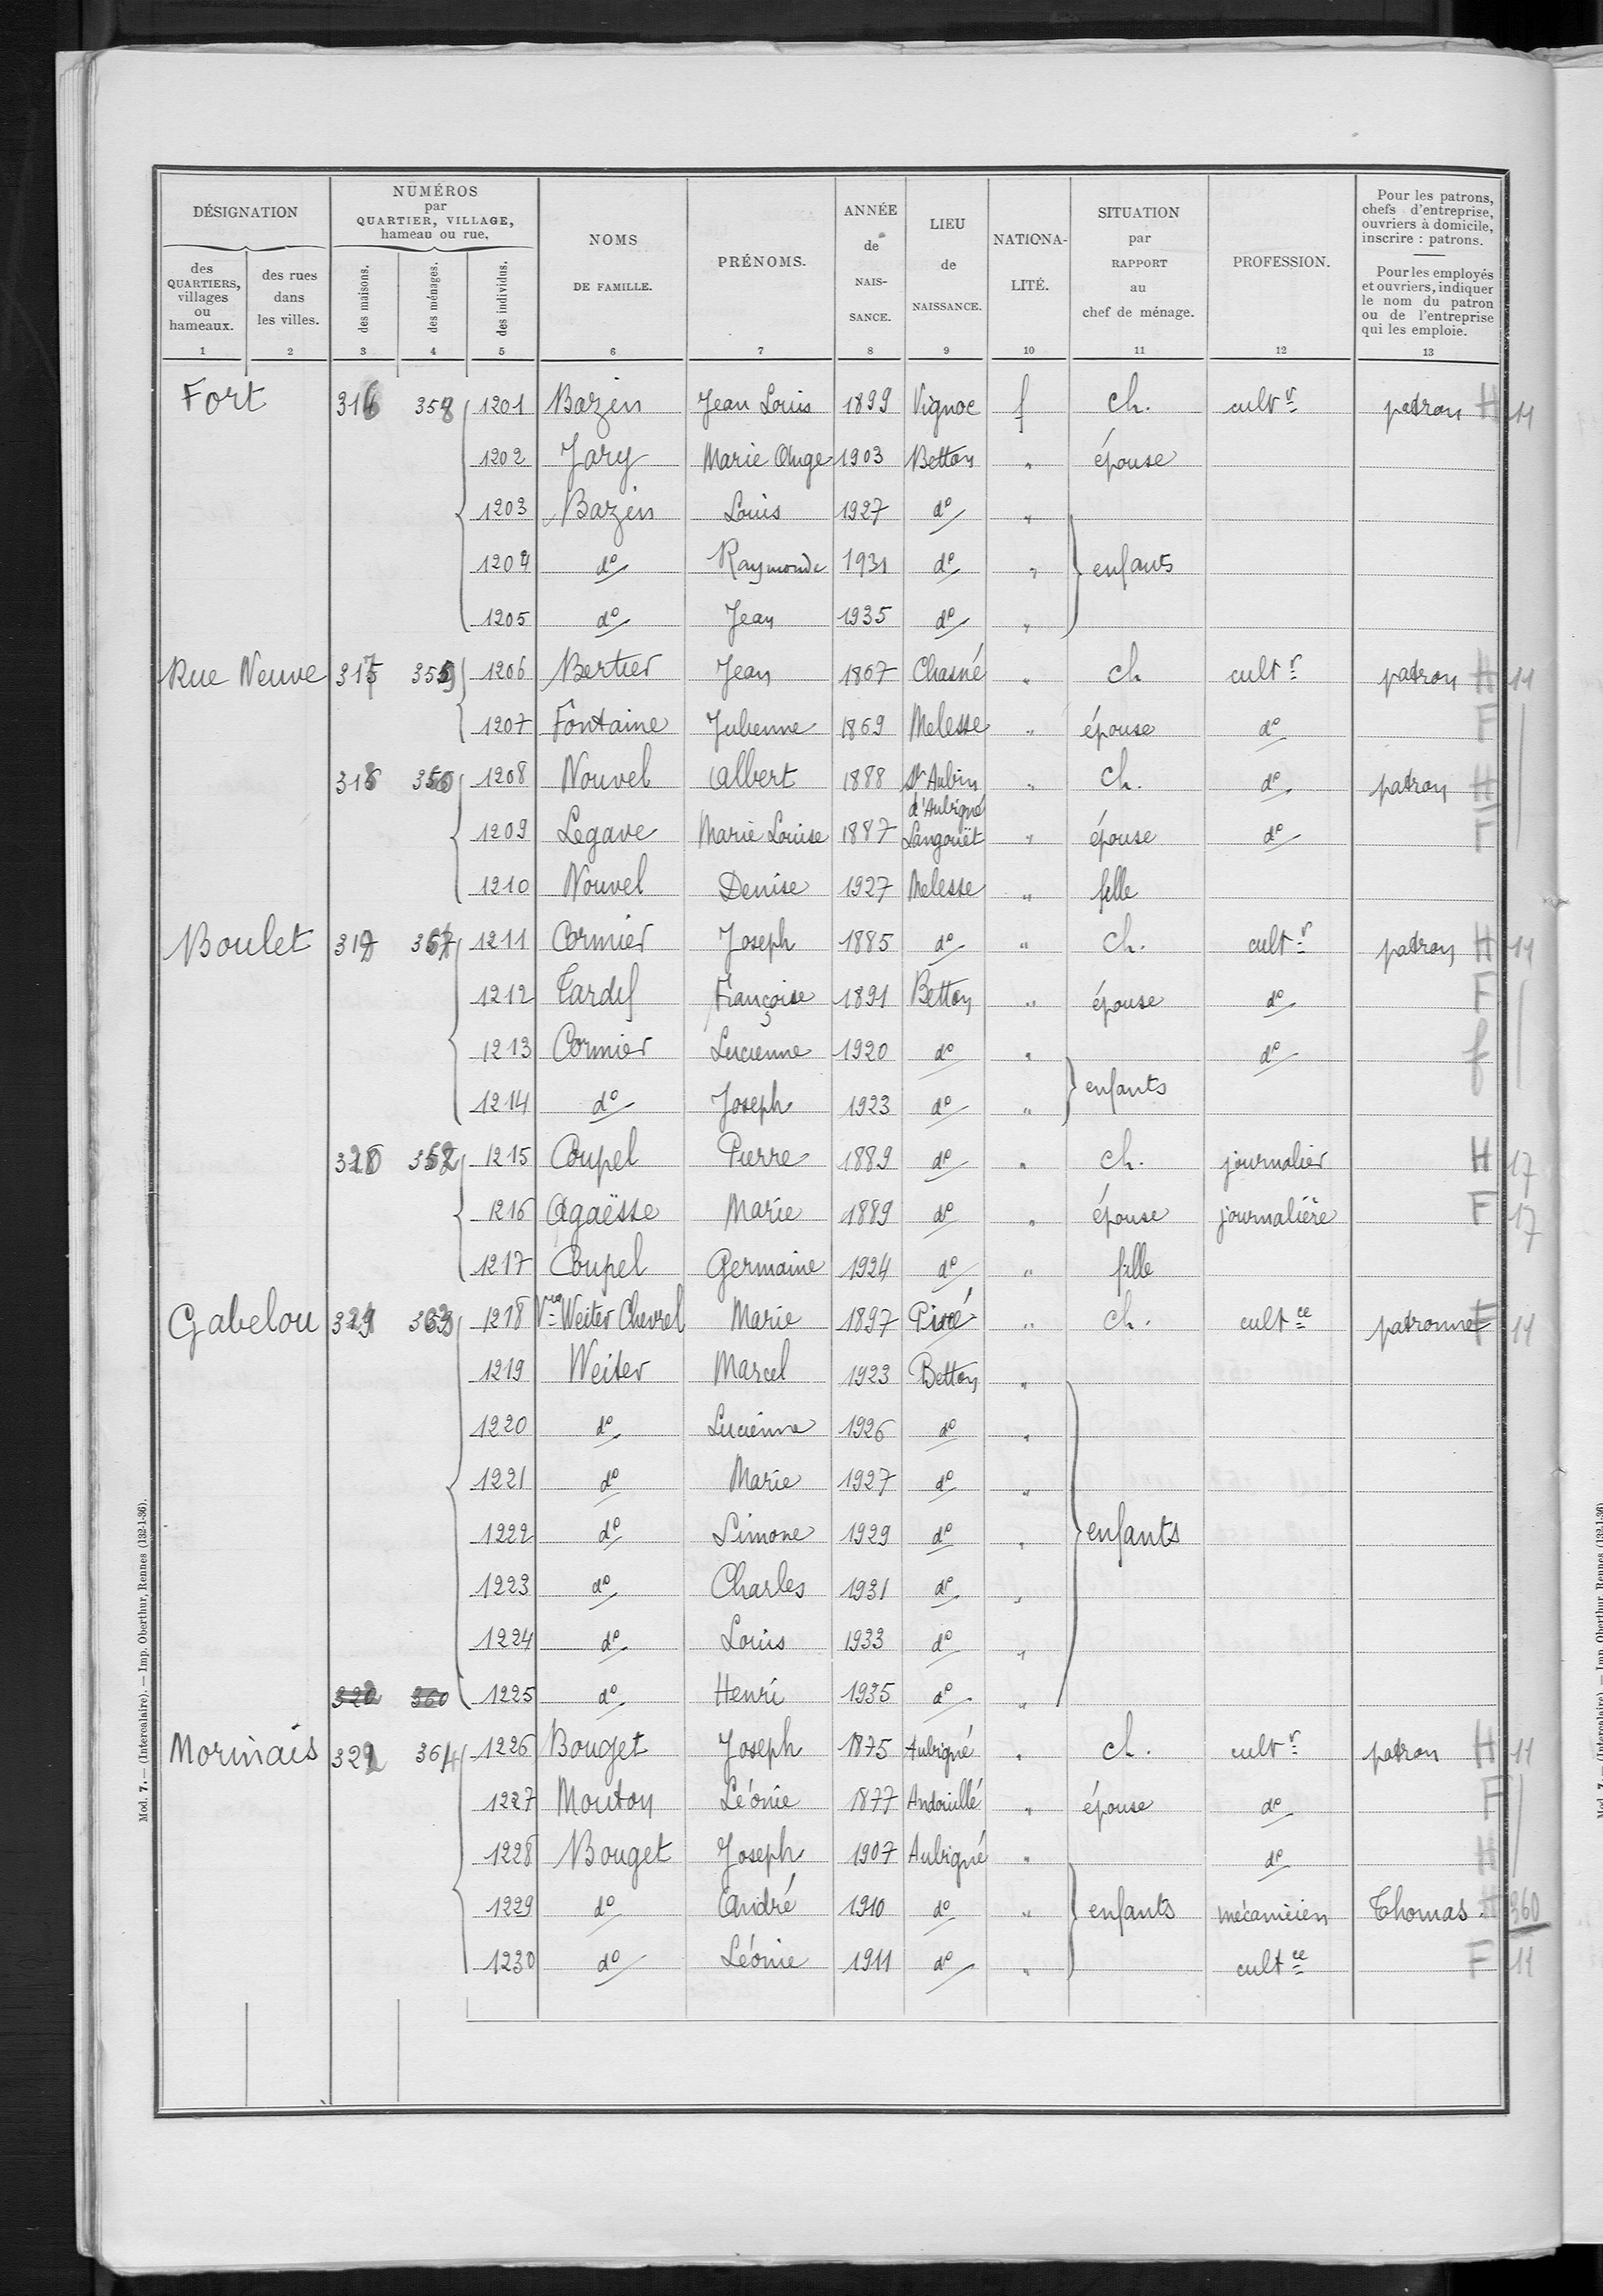 DÉSIGNATION
NUMÉROS par QUARTIER, VILLAGE, hameau ou rue.
NOMS DE FAMILLE.
PRÉNOMS.
ANNÉE de NAIS- SANCE.
LIEU de NAISSANCE.
NATIONA- LITÉ.
SITUATION par RAPPORT au chef de ménage.
PROFESSION.
Pour les patrons, chefs d'entreprise, ouvriers à domicile, inscrire : patrons.
Pour les employés et ouvriers, indiquer le nom du patron ou de l'entreprise qui les emploie.
des QUARTIERS, villages ou hameaux.
des rues dans les villes.
des maisons.
des ménages.
des individus.
1 2 3 4 5 6 7 8 9 10 11 12 13
Fort 316 358 1201 Bazin Jean Louis 1899 Vignoc f ch. cultr patron H 11
1202 Jary Marie Ange 1903 Betton " épouse
1203 Bazin Louis 1927 do "
1204 do Raymonde 1931 do " enfants
1205 do Jean 1935 do "
Rue Neuve 317 359 1206 Bertier Jean 1867 Chasné " ch cultr patron H 11
1207 Fontaine Julienne 1869 Melesse " épouse do F
318 360 1208 Nouvel Albert 1888 St Aubin d'Aubigné " ch. do patron H
1209 Legave Marie Louise 1887 Langouët " épouse do F
1210 Nouvel Denise 1927 Melesse " fille
Boulet 319 361 1211 Cormier Joseph 1885 do " ch. cultr patron H 11
1212 Tardif Françoise 1891 Betton " épouse do F
1213 Cormier Lucienne 1920 do " do f
enfants
1214 do Joseph 1923 do "
320 362 1215 Coupel Pierre 1889 do " ch. journalier H 17
1216 Agaësse Marie 1889 do " épouse journalière F 17
1217 Coupel Germaine 1924 do " fille
Gabelou 321 363 1218 Vve Weiter Chevrel Marie 1897 Piré " ch. cultce patronne F 11
1219 Weiter Marcel 1923 Betton "
1220 do Lucienne 1926 do "
1221 do Marie 1927 do "
1222 do Simone 1929 do " enfants
1223 do Charles 1931 do "
1224 do Louis 1933 do "
320 360 1225 do Henri 1935 do "
Morinais 322 364 1226 Bouget Joseph 1875 Aubigné " ch. cultr patron H 11
1227 Mouton Léonie 1877 Andouillé " épouse do F
1228 Bouget Joseph 1907 Aubigné " do H
1229 do André 1910 do " enfants mécanicien Thomas H 360
1230 do Léonie 1911 do " cultce F 11
Mod. 7. — (Intercalaire). — Imp. Oberthur, Rennes (132-1-36).
Mod. 7. — (Intercalaire). — Imp. Oberthur, Rennes (132-1-36)